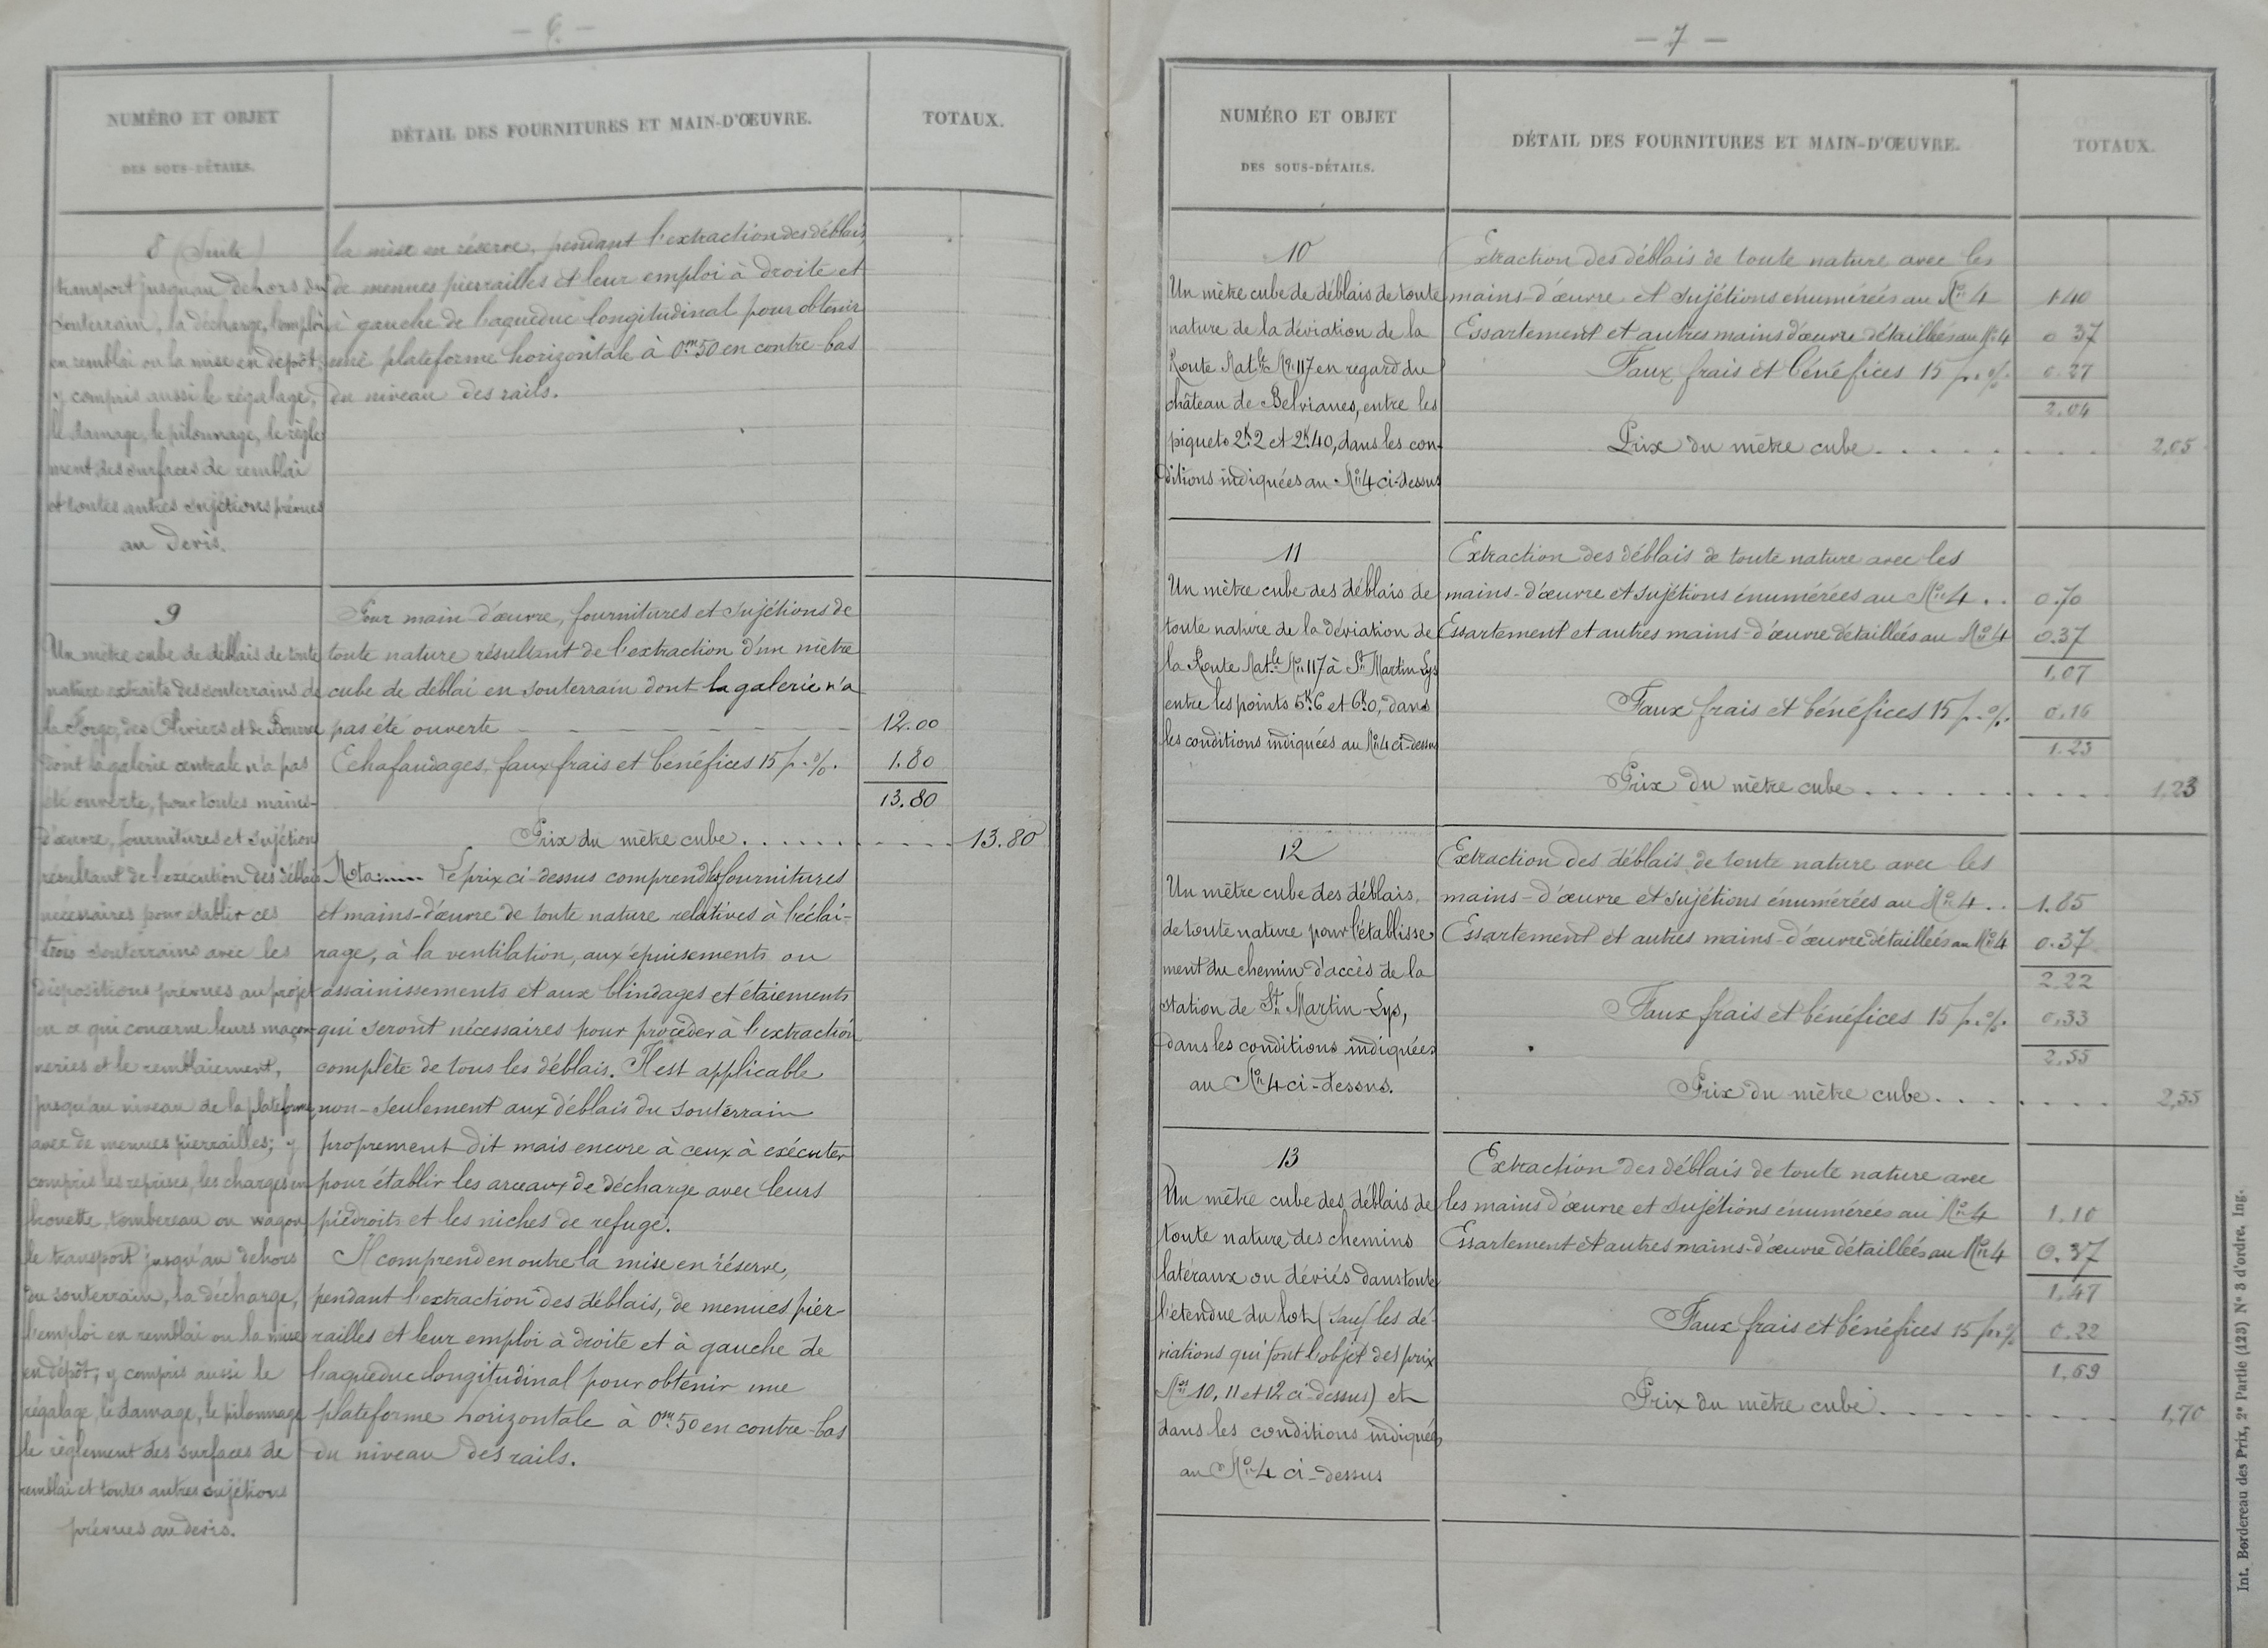 — 6 —
NUMÉRO ET OBJET
DES SOUS-DÉTAILS.
DÉTAIL DES FOURNITURES ET MAIN-D'ŒUVRE.
TOTAUX.
8 (Suite)
transport jusqu'au dehors du
souterrain, la décharge, l'emploi
en remblai ou la mise en dépôt,
y compris aussi le régalage,
le damage, le pilonnage, le règle
ment des surfaces de remblai
et toutes autres sujétions prévues
au Devis.
la mise en réserve, pendant l'extraction des déblais,
de menues pierrailles et leur emploi à droite et
à gauche de l'aqueduc longitudinal pour obtenir
une plateforme horizontale à 0m50 en contre-bas
du niveau des rails.
9
Un mètre cube de déblais de toute
nature extraits des souterrains de
la Forge, des Oliviers et de
dont la galerie centrale n'a pas
été ouverte, pour toutes mains-
d'œuvre, fournitures et sujétion
résultant de l'exécution des déblais
nécessaires pour établir ces
trois souterrains avec les
dispositions prévues au projet
en ce qui concerne leurs maçon-
neries et le remblaiement,
jusqu'au niveau de la plateforme
avec de menues pierrailles; y
compris les reprises, les charges en
brouette, tombereau ou wagon
le transport jusqu'au dehors
du souterrain, la décharge,
l'emploi en remblai ou la mise
en dépôt, y compris aussi le
régalage, le damage, le pilonnage
le règlement des surfaces de
remblai et toutes autres sujétions
prévues au devis.
Pour main d'œuvre, fournitures et sujétions de
toute nature résultant de l'extraction d'un mètre
cube de déblai en souterrain dont la galerie n'a
pas été ouverte — — — — — — 12.00
Echafaudages, faux frais et bénéfices 15 p.%. 1.80
13.80
Prix du mètre cube . . . . . . . . . . . 13.80
Nota : Le prix ci-dessus comprend les fournitures
et mains-d'œuvre de toute nature relatives à l'éclai-
rage, à la ventilation, aux épuisements ou
assainissements et aux blindages et étaiements
qui seront nécessaires pour procéder à l'extraction
complète de tous les déblais. Il est applicable
non-seulement aux déblais du souterrain
proprement dit mais encore à ceux à exécuter
pour établir les arceaux de décharge avec leurs
piédroits et les niches de refuge.
Il comprend en outre la mise en réserve,
pendant l'extraction des déblais, de menues pier-
railles et leur emploi à droite et à gauche de
l'aqueduc longitudinal pour obtenir une
plateforme horizontale à 0m50 en contre-bas
du niveau des rails.
— 7 —
NUMÉRO ET OBJET
DES SOUS-DÉTAILS.
DÉTAIL DES FOURNITURES ET MAIN-D'ŒUVRE.
TOTAUX.
10
Un mètre cube de déblais de toute
nature de la déviation de la
Route Natle No 117 en regard du
château de Belvianes, entre les
piquets 2K.2 et 2K.40, dans les con-
ditions indiquées au No 4 ci-dessus
Extraction des déblais de toute nature avec les
mains-d'œuvre et sujétions énumérées au No 4 1.40
Essartement et autres mains d'œuvre détaillées au No 4 0 37
Faux frais et bénéfices 15 p.% 0.27
2.04
Prix du mètre cube . . . . . . . . 2,05
11
Un mètre cube des déblais de
toute nature de la déviation de
la Route Natle No 117 à St Martin-Lys
entre les points 5K.6 et 6K.0, dans
les conditions indiquées au No 4 ci-dessus
Extraction des déblais de toute nature avec les
mains-d'œuvre et sujétions énumérées au No 4 . . 0.70
Essartement et autres mains-d'œuvre détaillées au No 4 0.37
1,07
Faux frais et bénéfices 15 p.%. 0.16
1.23
Prix du mètre cube . . . . . . . . . . 1,23
12
Un mètre cube des déblais,
de toute nature pour l'établisse
ment du chemin d'accès de la
station de St Martin-Lys,
dans les conditions indiquées
au No 4 ci-dessus.
Extraction des déblais de toute nature avec les
mains-d'œuvre et sujétions énumérées au No 4 . . 1.85
Essartement et autres mains-d'œuvre détaillées au No 4 0.37
2.22
Faux frais et bénéfices 15 p.%. 0,33
2,55
Prix du mètre cube . . . . . . 2,55
13
Un mètre cube des déblais de
toute nature des chemins
latéraux ou déviés dans toute
l'étendue du lot (sauf les dé-
viations qui font l'objet des prix
Nos 10, 11 et 12 ci-dessus) et
dans les conditions indiquées
au No 4 ci-dessus
Extraction des déblais de toute nature avec
les mains d'œuvre et sujétions énumérées au No 4 1.10
Essartement et autres mains-d'œuvre détaillées au No 4 0.37
1,47
Faux frais et bénéfices 15 p.% 0.22
1,69
Prix du mètre cube . . . . . . . . . 1,70
Int. Bordereau des Prix, 2e Partie (123) No 3 d'ordre. Ing.